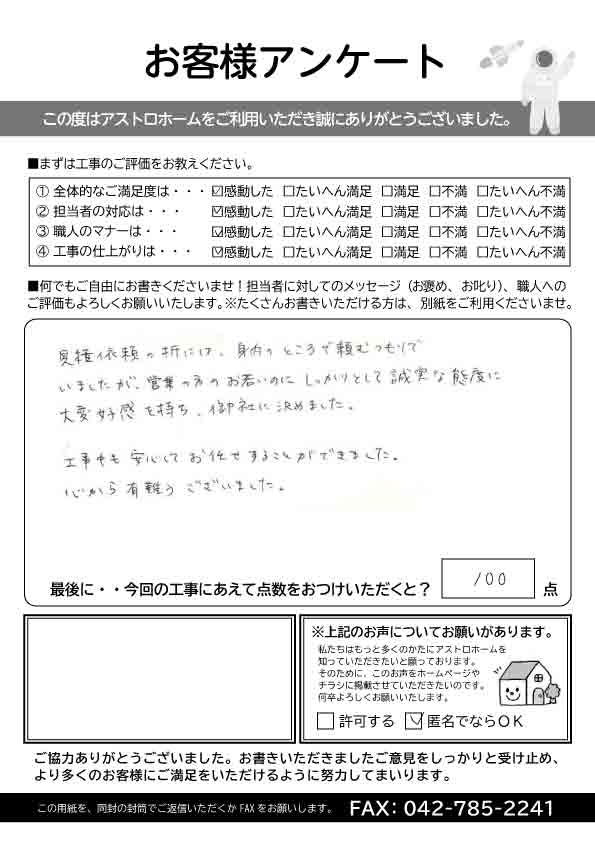 お客様アンケート
この度はアストロホームをご利用いただき誠にありがとうございました。
■まずは工事のご評価をお教えください。
① 全体的なご満足度は・・・ ☑感動した □たいへん満足 □満足 □不満 □たいへん不満
② 担当者の対応は・・・ ☑感動した □たいへん満足 □満足 □不満 □たいへん不満
③ 職人のマナーは・・・ ☑感動した □たいへん満足 □満足 □不満 □たいへん不満
④ 工事の仕上がりは・・・ ☑感動した □たいへん満足 □満足 □不満 □たいへん不満
■何でもご自由にお書きくださいませ！担当者に対してのメッセージ（お褒め、お叱り）、職人への
ご評価もよろしくお願いいたします。※たくさんお書きいただける方は、別紙をご利用くださいませ。
見積依頼の折には、身内のところで頼むつもりで
いましたが、営業の方のお若いのにしっかりとして誠実な態度に
大変好感を持ち、御社に決めました。
工事中も安心してお任せすることができました。
心から有難うございました。
最後に・・今回の工事にあえて点数をおつけいただくと？ 100 点
※上記のお声についてお願いがあります。
私たちはもっと多くのかたにアストロホームを
知っていただきたいと願っております。
そのために、このお声をホームページや
チラシに掲載させていただきたいのです。
何卒よろしくお願いいたします。
□ 許可する ☑ 匿名でならＯＫ
ご協力ありがとうございました。お書きいただきましたご意見をしっかりと受け止め、
より多くのお客様にご満足をいただけるように努力してまいります。
この用紙を、同封の封筒でご返信いただくか FAX をお願いします。 FAX: 042-785-2241